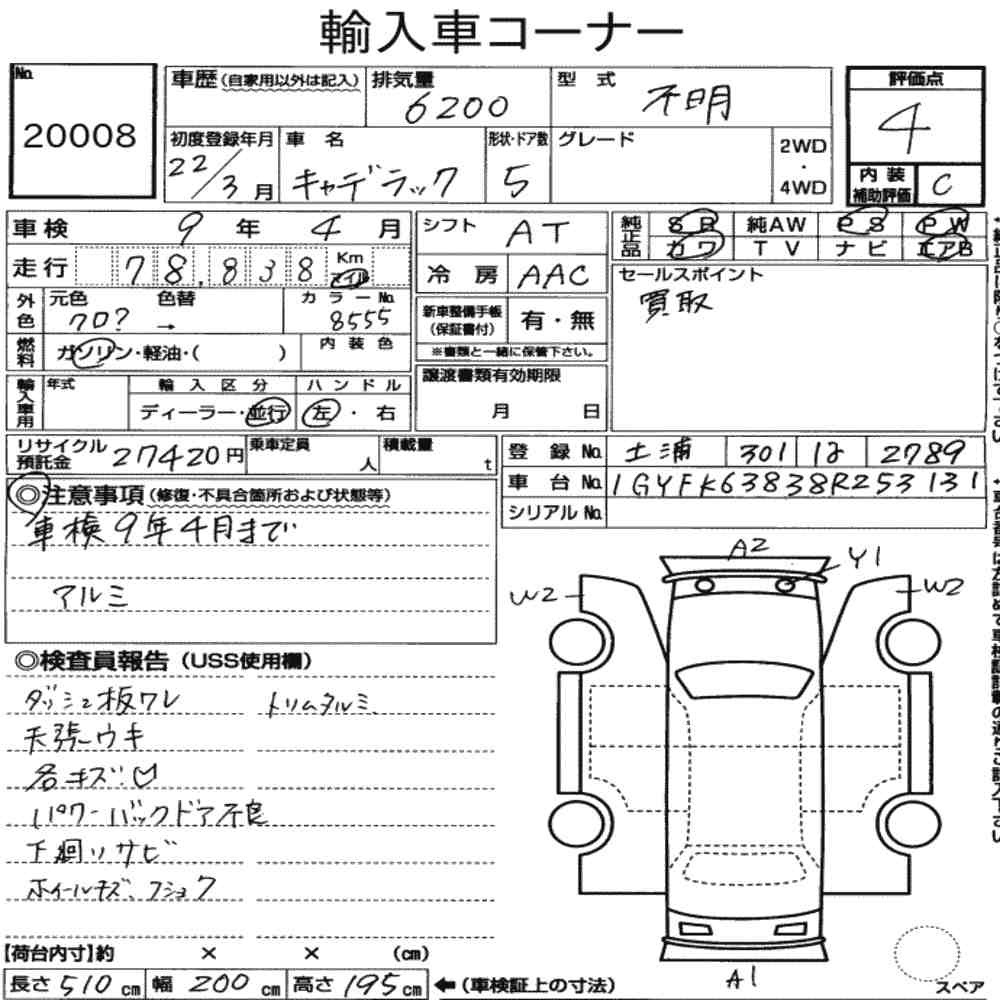 輸入車コーナー
No. 20008
車歴 (自家用以外は記入)
排気量 6200
型式 不明
評価点 4
初度登録年月 22/3月
車名 キャデラック
形状・ドア数 5
グレード
2WD・4WD
内装補助評価 C
車検 9年 4月
シフト AT
純正品 SR 純AW PS PW
カワ TV ナビ エアB
走行 78,838 Km マイル
冷房 AAC
セールスポイント
買取
外色 元色 クロ? 色替 →
カラーNo. 8555
新車整備手帳(保証書付) 有・無
※書類と一緒に保管下さい。
燃料 ガソリン・軽油・( )
内装色
譲渡書類有効期限
月 日
輸入車用 年式
輸入区分 ディーラー・並行
ハンドル 左・右
リサイクル預託金 27420円
乗車定員 人
積載量 t
登録No. 土浦 301 は 2789
車台No. 1GYFK63838R253131
シリアルNo.
◎注意事項 (修復・不具合箇所および状態等)
車検9年4月まで
アルミ
◎検査員報告 (USS使用欄)
ダッシュ板ワレ トリムタルミ
天張ウキ
各キズ
パワーバックドア不良
下廻りサビ
ホイールキズ、フショク
A2
Y1
W2
W2
A1
スペア
【荷台内寸】約 × × (cm)
長さ 510 cm 幅 200 cm 高さ 195 cm ←(車検証上の寸法)